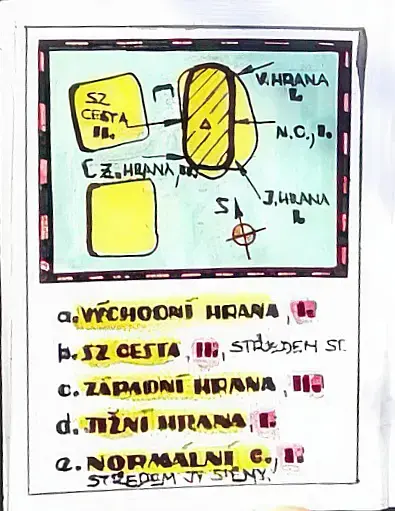 SZ
CESTA
II.
V. HRANA
I.
N.C., I.
Z. HRANA, III.
J. HRANA
I.
S
a. VÝCHODNÍ HRANA, I.
b. SZ CESTA, II., STŘEDEM ST.
c. ZÁPADNÍ HRANA, III.
d. JIŽNÍ HRANA, I.
e. NORMÁLNÍ C., I.
STŘEDEM JV STĚNY.